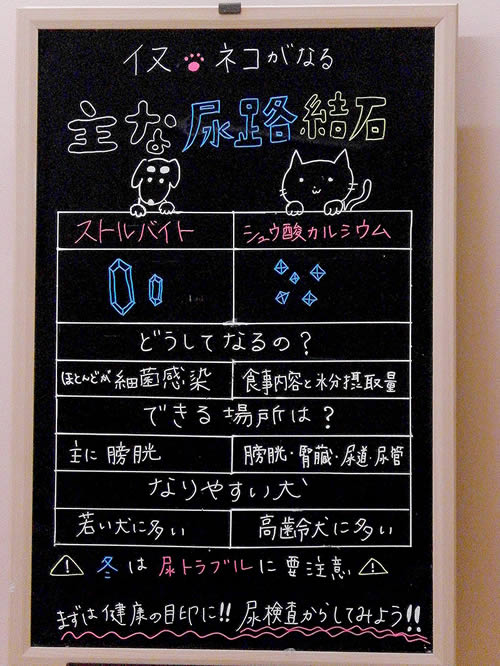 イヌ ネコがなる
主な尿路結石
ストルバイト シュウ酸カルシウム
どうしてなるの?
ほとんどが細菌感染 食事内容と水分摂取量
できる場所は?
主に膀胱 膀胱・腎臓・尿道・尿管
なりやすい犬
若い犬に多い 高齢犬に多い
冬は尿トラブルに要注意
まずは健康の目印に!! 尿検査からしてみよう!!